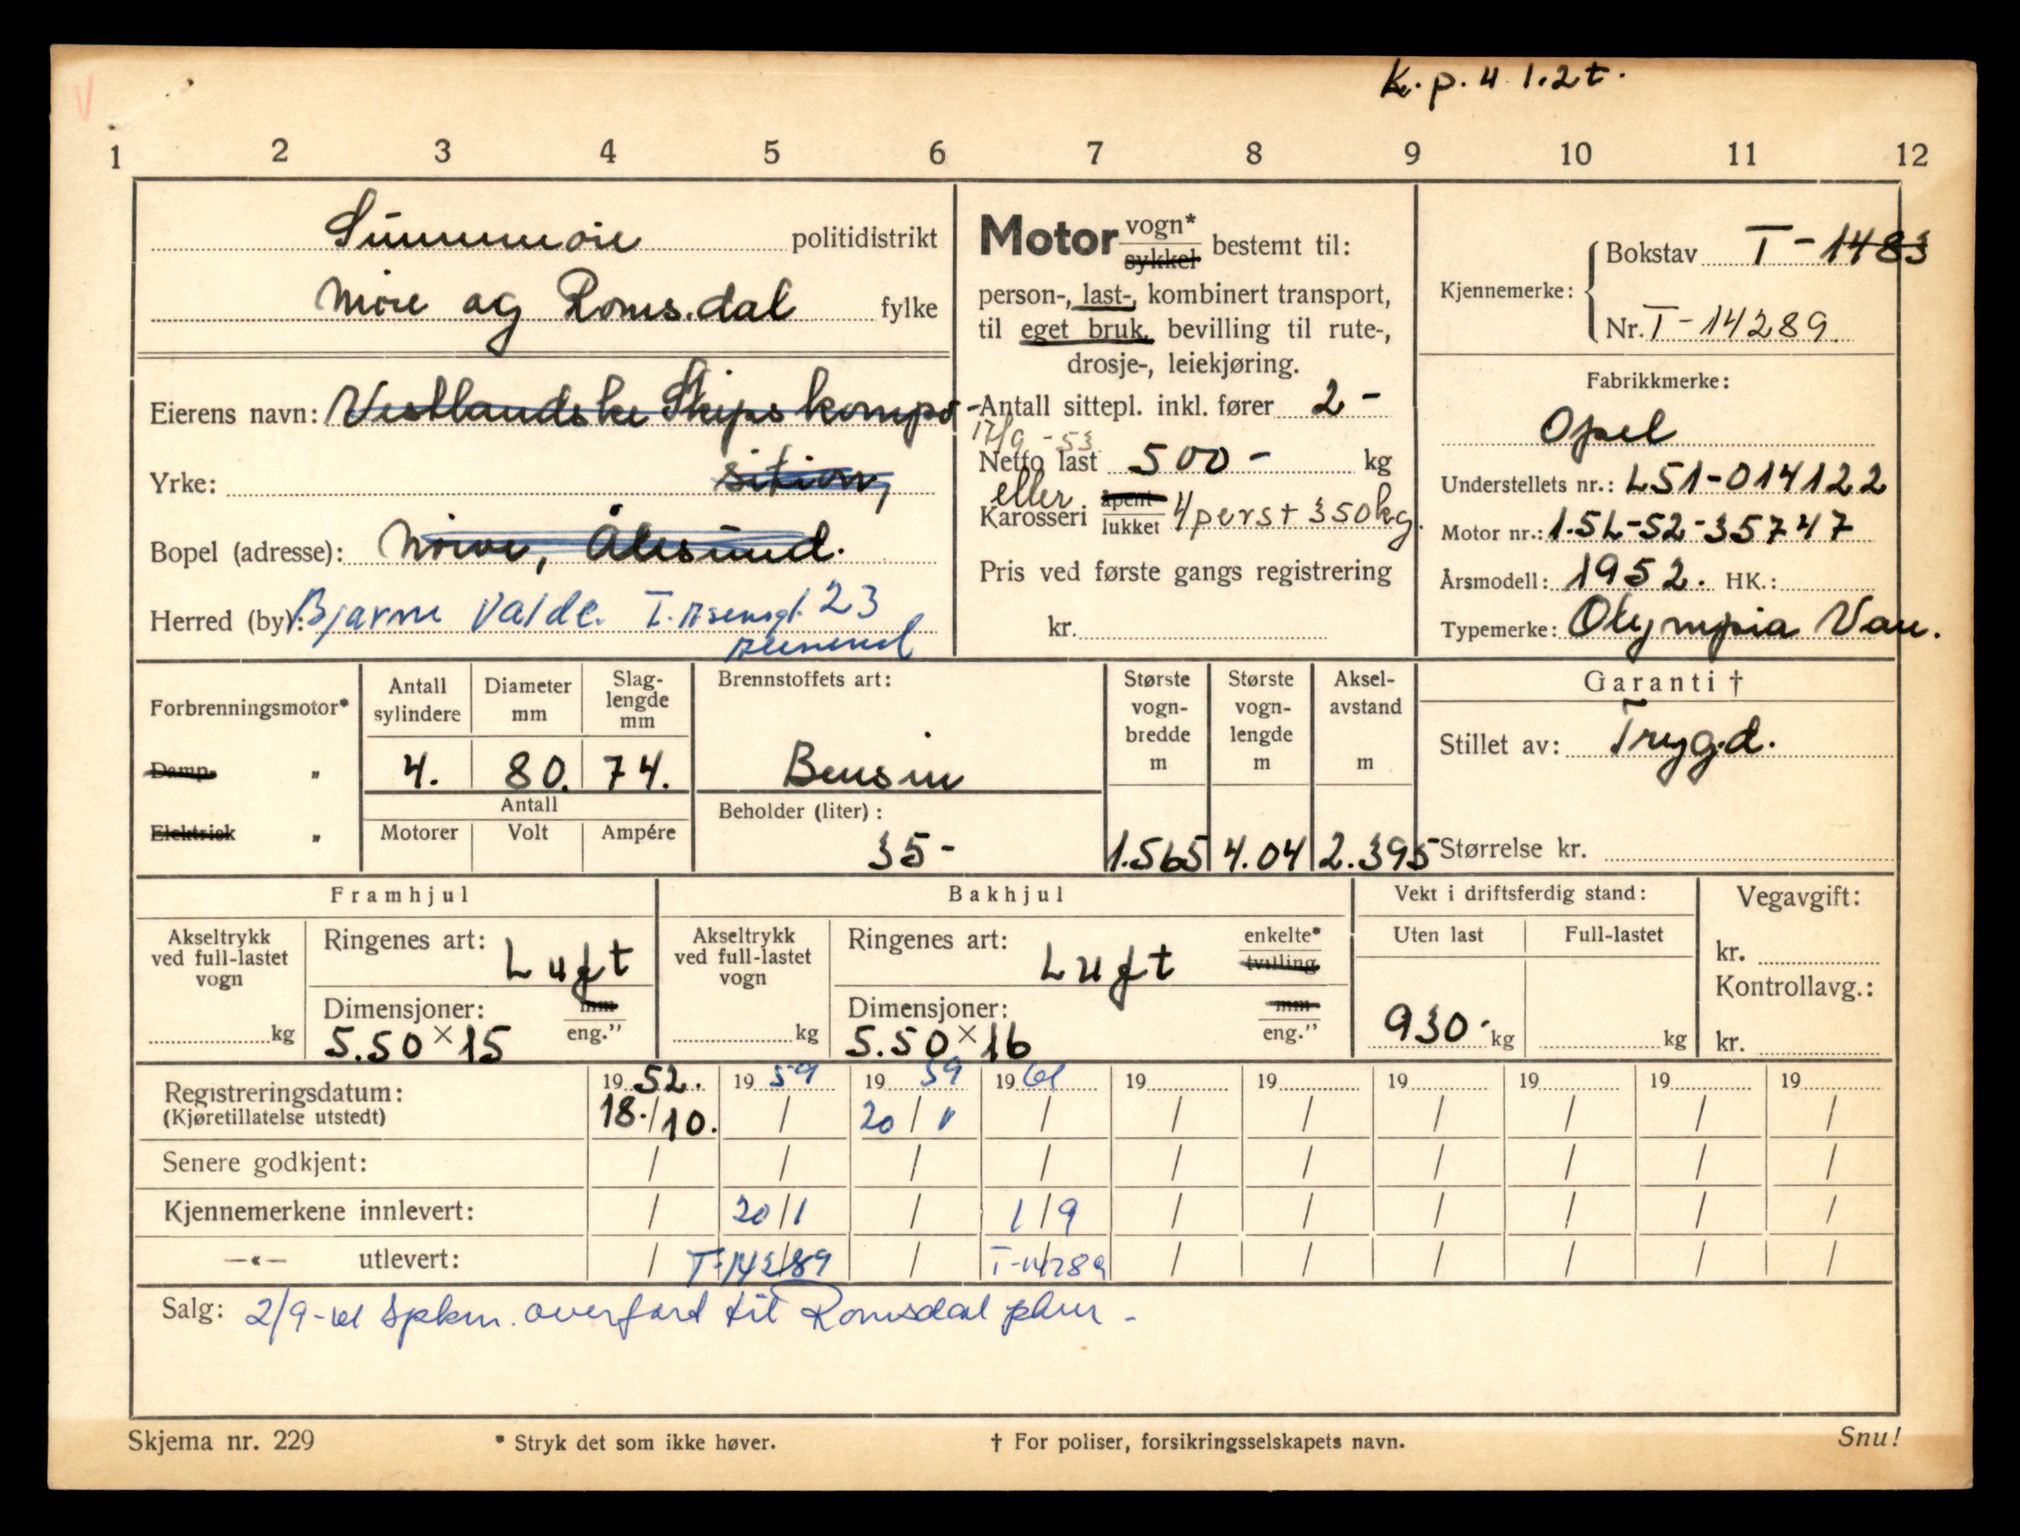 K.p. 4 1.2t.
1 2 3 4 5 6 7 8 9 10 11 12
Sunnmøre politidistrikt
Møre og Romsdal fylke
Eierens navn: Vestlandske Skipskompo-
Yrke: sition,
Bopel (adresse): Nørve, Ålesund.
Herred (by): Bjarne Valde. 23
Motor vogn* sykkel bestemt til:
person-, last-, kombinert transport,
til eget bruk, bevilling til rute-,
drosje-, leiekjøring.
Antall sittepl. inkl. fører 2 -
17/9 - 53
Netto last 500 - kg
eller
Karosseri åpent lukket 4 pers + 350 kg.
Pris ved første gangs registrering
kr.
Kjennemerke: Bokstav T - 1483
Nr. T - 14289
Fabrikkmerke:
Opel
Understellets nr.: L51-014122
Motor nr.: 1.5L-52-35747
Årsmodell: 1952. HK.:
Typemerke: Olympia Van.
Forbrenningsmotor*
Damp "
Elektrisk "
Antall sylindere
Diameter mm
Slag-lengde mm
4. 80. 74.
Antall
Motorer Volt Ampére
Brennstoffets art:
Bensin
Beholder (liter):
35 -
Største vogn-bredde m
1.565
Største vogn-lengde m
4.04
Aksel-avstand m
2.395
Garanti †
Stillet av: Trygd.
Størrelse kr.
Framhjul
Akseltrykk ved full-lastet vogn
kg
Ringenes art: Luft
Dimensjoner: mm
5.50 × 15 eng."
Bakhjul
Akseltrykk ved full-lastet vogn
kg
Ringenes art: Luft enkelte* tvilling
Dimensjoner: mm
5.50 × 16 eng."
Vekt i driftsferdig stand:
Uten last Full-lastet
930 - kg kg
Vegavgift:
kr.
Kontrollavg.:
kr.
Registreringsdatum: 19 52. 19 59 19 59 19 61 19 19 19 19 19 19
(Kjøretillatelse utstedt) 18./10. / 20/1 / / / / / / /
Senere godkjent: / / / / / / / / / /
Kjennemerkene innlevert: / 20/1 / 1/9 / / / / / /
—«— utlevert: / T-14289 / T-14289 / / / / / /
Salg: 2/9-61 spkm. overført til Romsdal
Skjema nr. 229
* Stryk det som ikke høver.
† For poliser, forsikringsselskapets navn.
Snu!